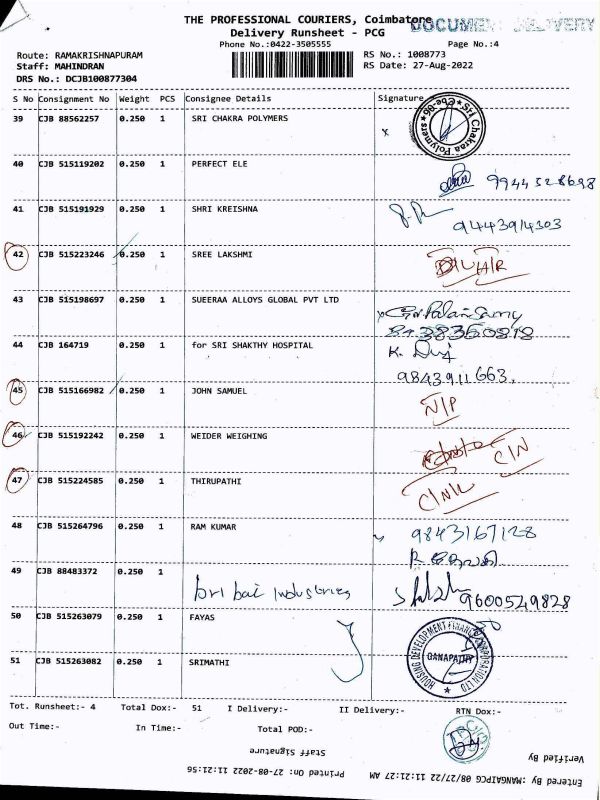 THE PROFESSIONAL COURIERS, Coimbatore
DOCUMENT DELIVERY
Delivery Runsheet - PCG
Phone No.:0422-3505555
Page No.:4
Route: RAMAKRISHNAPURAM
RS No.: 1008773
Staff: MAHINDRAN
RS Date: 27-Aug-2022
DRS No.: DCJB100877304
S No Consignment No Weight PCS Consignee Details Signature
39 CJB 88562257 0.250 1 SRI CHAKRA POLYMERS x
Sri Chakraa Polymers
40 CJB 515119202 0.250 1 PERFECT ELE
9944528698
41 CJB 515191929 0.250 1 SHRI KREISHNA
9443914303
42 CJB 515223246 0.250 1 SREE LAKSHMI
43 CJB 515198697 0.250 1 SUEERAA ALLOYS GLOBAL PVT LTD
8438350818
44 CJB 164719 0.250 1 for SRI SHAKTHY HOSPITAL
9843911663.
45 CJB 515166982 0.250 1 JOHN SAMUEL
N/P
46 CJB 515192242 0.250 1 WEIDER WEIGHING
C/N
47 CJB 515224585 0.250 1 THIRUPATHI
48 CJB 515264796 0.250 1 RAM KUMAR
9843167128
49 CJB 88483372 0.250 1 bri bai Industries 9600549828
50 CJB 515263079 0.250 1 FAYAS
HOUSING DEVELOPMENT FINANCE CORPORATION LTD
GANAPATHY
51 CJB 515263082 0.250 1 SRIMATHI
Tot. Runsheet:- 4 Total Dox:- 51 I Delivery:- II Delivery:- RTN Dox:-
Out Time:- In Time:- Total POD:-
Staff Signature
Verified By
Printed On: 27-08-2022 11:21:56
Entered By: MANGAIPCG 08/27/22 11:21:27 AM